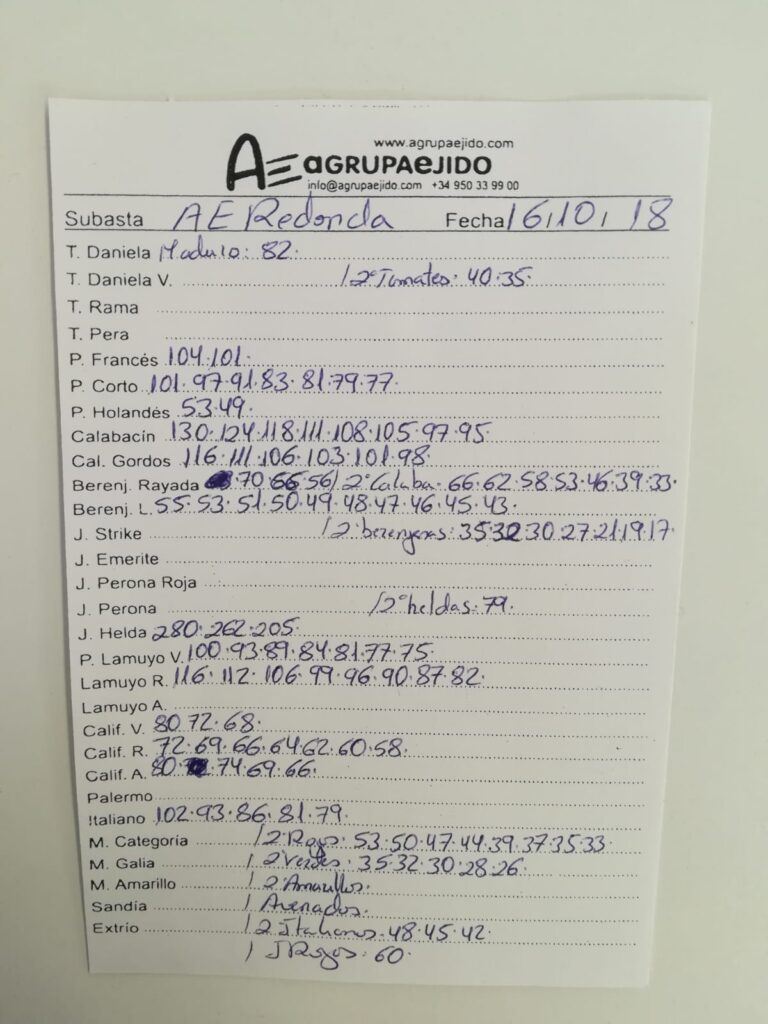 www.agrupaejido.com
AE aGRUPAeJIDO
info@agrupaejido.com +34 950 33 99 00
Subasta AE Redonda Fecha 16, 10, 18
T. Daniela Madulo: 82.
T. Daniela V. / 2ª Tomates. 40.35
T. Rama
T. Pera
P. Francés 104.101.
P. Corto 101.97.91.83.81.79.77.
P. Holandés 53.49.
Calabacín 130.124.118.111.108.105.97.95
Cal. Gordos 116.111.106.103.101.98
Berenj. Rayada 70.66.56/2ª Calaba. 66.62.58.53.46.39.33.
Berenj. L. 55.53.51.50.49.48.47.46.45.43.
J. Strike / 2ª berenjenas: 35 32 30.27.21.19.17.
J. Emerite
J. Perona Roja
J. Perona / 2ª heldas. 79.
J. Helda 280.262.205
P. Lamuyo V. 100.93.89.84.81.77.75.
Lamuyo R. 116.112.106.99.96.90.87.82.
Lamuyo A.
Calif. V. 80.72.68.
Calif. R. 72.69.66.64.62.60.58.
Calif. A. 80 74.69.66.
Palermo
Italiano 102.93.86.81.79.
M. Categoría / 2ª Rojos. 53.50.47.44.39.37.35.33
M. Galia / 2 Verdes. 35.32.30.28.26.
M. Amarillo / 2ª Amarillos.
Sandía /
Extrío / 2 Italianos. 48.45.42.
/ J Rojos. 60.